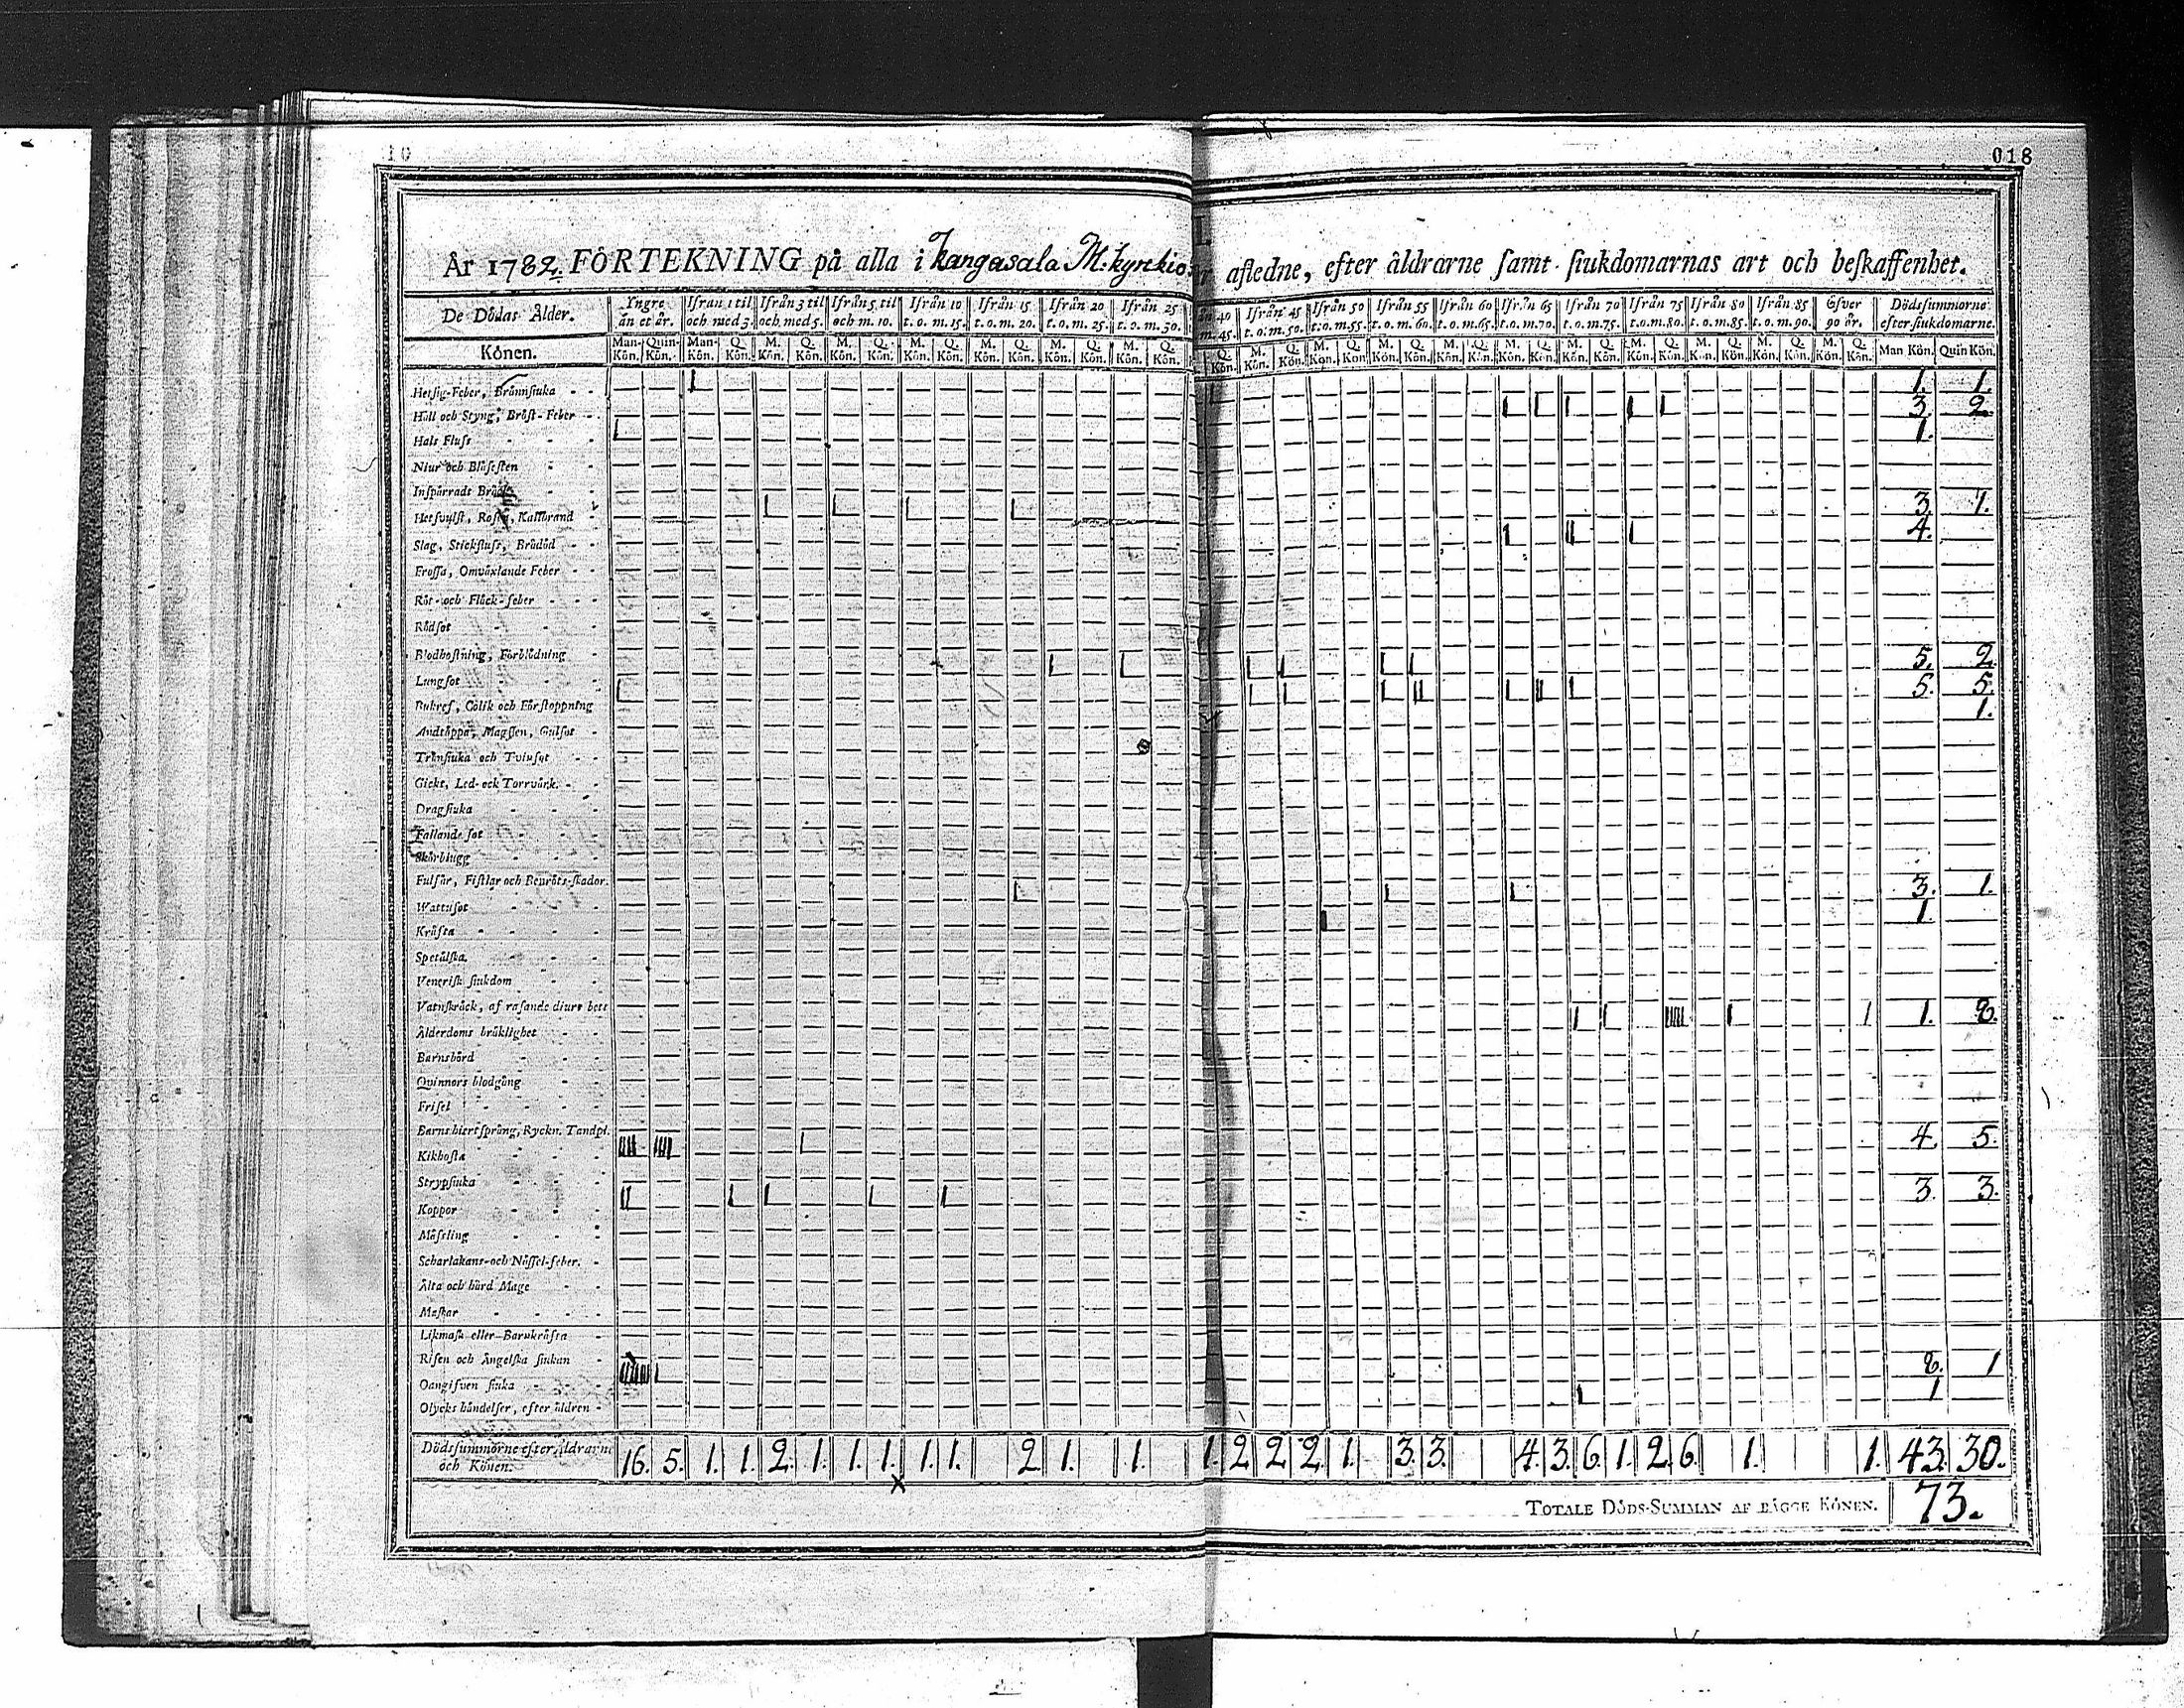 10
018
År 1782. FÖRTEKNING på alla i Kangasala M: kyrkio
afledne, efter åldrarne samt siukdomarnas art och beskaffenhet.
De Dödas Ålder.
Yngre än et år. Ifrån 1 til och med 3. Ifrån 3 til och med 5. Ifrån 5 til och m. 10. Ifrån 10 t. o. m. 15. Ifrån 15 t. o. m. 20. Ifrån 20 t. o. m. 25. Ifrån 25 t. o. m. 30.
40 m. 45. Ifrån 45 t. o. m. 50. Ifrån 50 t. o. m. 55. Ifrån 55 t. o. m. 60. Ifrån 60 t. o. m. 65. Ifrån 65 t. o. m. 70. Ifrån 70 t. o. m. 75. Ifrån 75 t. o. m. 80. Ifrån 80 t. o. m. 85. Ifrån 85 t. o. m. 90. Öfver 90 år. Dödssummorne efter siukdomarne.
Könen. Man-Kön. Quin-Kön. Man-Kön. Q. Kön. M. Kön. Q. Kön. M. Kön. Q. Kön. M. Kön. Q. Kön. M. Kön. Q. Kön. M. Kön. Q. Kön. M. Kön. Q. Kön.
Q. Kön. M. Kön. Q. Kön. M. Kön. Q. Kön. M. Kön. Q. Kön. M. Kön. Q. Kön. M. Kön. Q. Kön. M. Kön. Q. Kön. M. Kön. Q. Kön. M. Kön. Q. Kön. M. Kön. Q. Kön. M. Kön. Q. Kön. Man Kön. Quin Kön.
Hetsig-Feber, Brännsiuka 1. 1.
Håll och Styng, Bröst-Feber 3. 2.
Hals Fluss 1.
Niur och Blåsesten
Inspärradt Bråck
Hetsvulst, Rosen, Kallbrand 3. 1.
Slag, Stickfluss, Brådöd 4.
Frossa, Omväxlande Feber
Röt- och Fläck-feber
Rödsot
Blodhostning, Förblödning
Lungsot 5. 2
Bukref, Colik och Förstoppning 5. 5.
Andtäppa, Magsien, Gulsot 1.
Trånsiuka och Tvinsot
Gickt, Led- och Torrvärk.
Dragsiuka
Fallande sot
Skörbiugg
Fulsår, Fistlar och Benröts-skador.
Wattusot 3. 1.
Kräfta 1.
Spetälska
Venerisk siukdom
Vatnskräck, af rasande diurs bett
Ålderdoms bräklighet 1. 8.
Barnsbörd
Qvinnors blodgång
Frisel
Barns hiertsprång, Ryckn. Tandpl.
Kikhosta 4. 5.
Strypsiuka
Koppor 3. 3.
Mässling
Scharlakans- och Nässel-feber.
Älta och hård Mage
Maskar
Likmask eller Barnkräfta
Risen och Ängelska siukan
Oangifven siuka 8. 1
Olycks händelser, efter åldren 1
Dödssummorne efter Åldrarne och Könen. 16. 5. 1. 1. 2. 1. 1. 1. 1. 1. 2. 1. 1.
1. 2. 2. 2. 1. 3. 3. 4. 3. 6. 1. 2. 6. 1. 1. 43. 30.
TOTALE DÖDS-SUMMAN AF BÄGGE KÖNEN. 73.